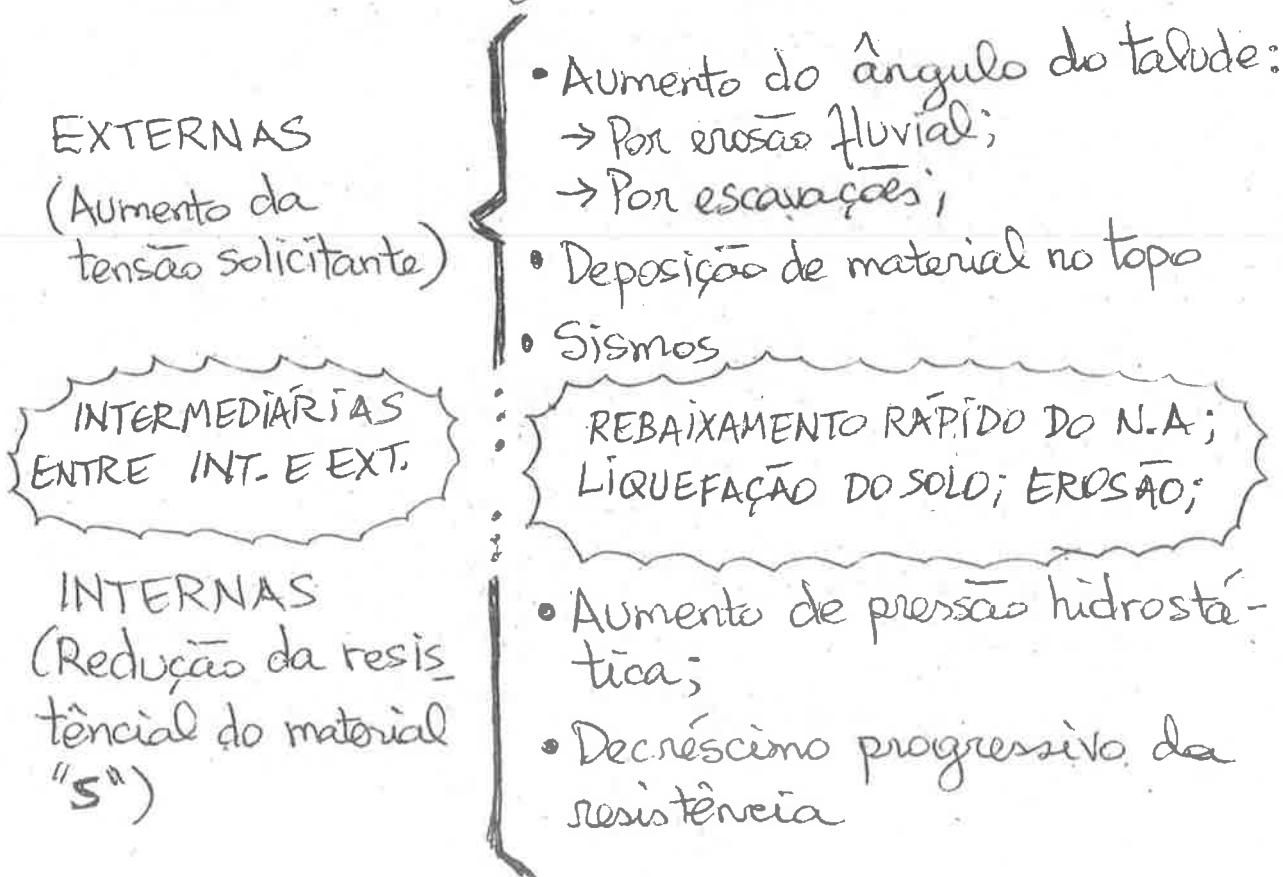 EXTERNAS
(Aumento da
tensão solicitante)
• Aumento do ângulo do talude:
→ Por erosão fluvial;
→ Por escavações;
• Deposição de material no topo
• Sismos
INTERMEDIÁRIAS
ENTRE INT. E EXT.
REBAIXAMENTO RÁPIDO DO N.A;
LIQUEFAÇÃO DO SOLO; EROSÃO;
INTERNAS
(Redução da resis
têncial do material
"S")
• Aumento de pressão hidrostá-
tica;
• Decréscimo progressivo da
resistência